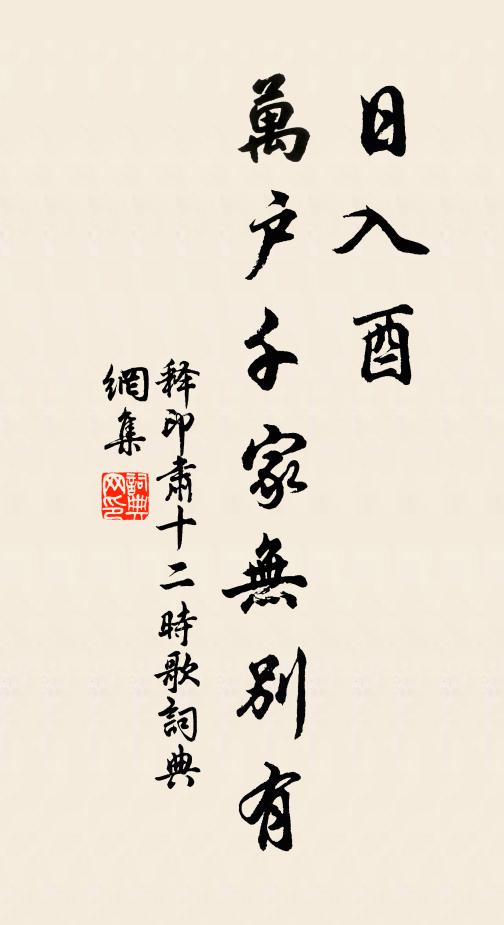 日入酉
萬户千家無別有
释印肅十二時歌詞典
網集
詞典网印